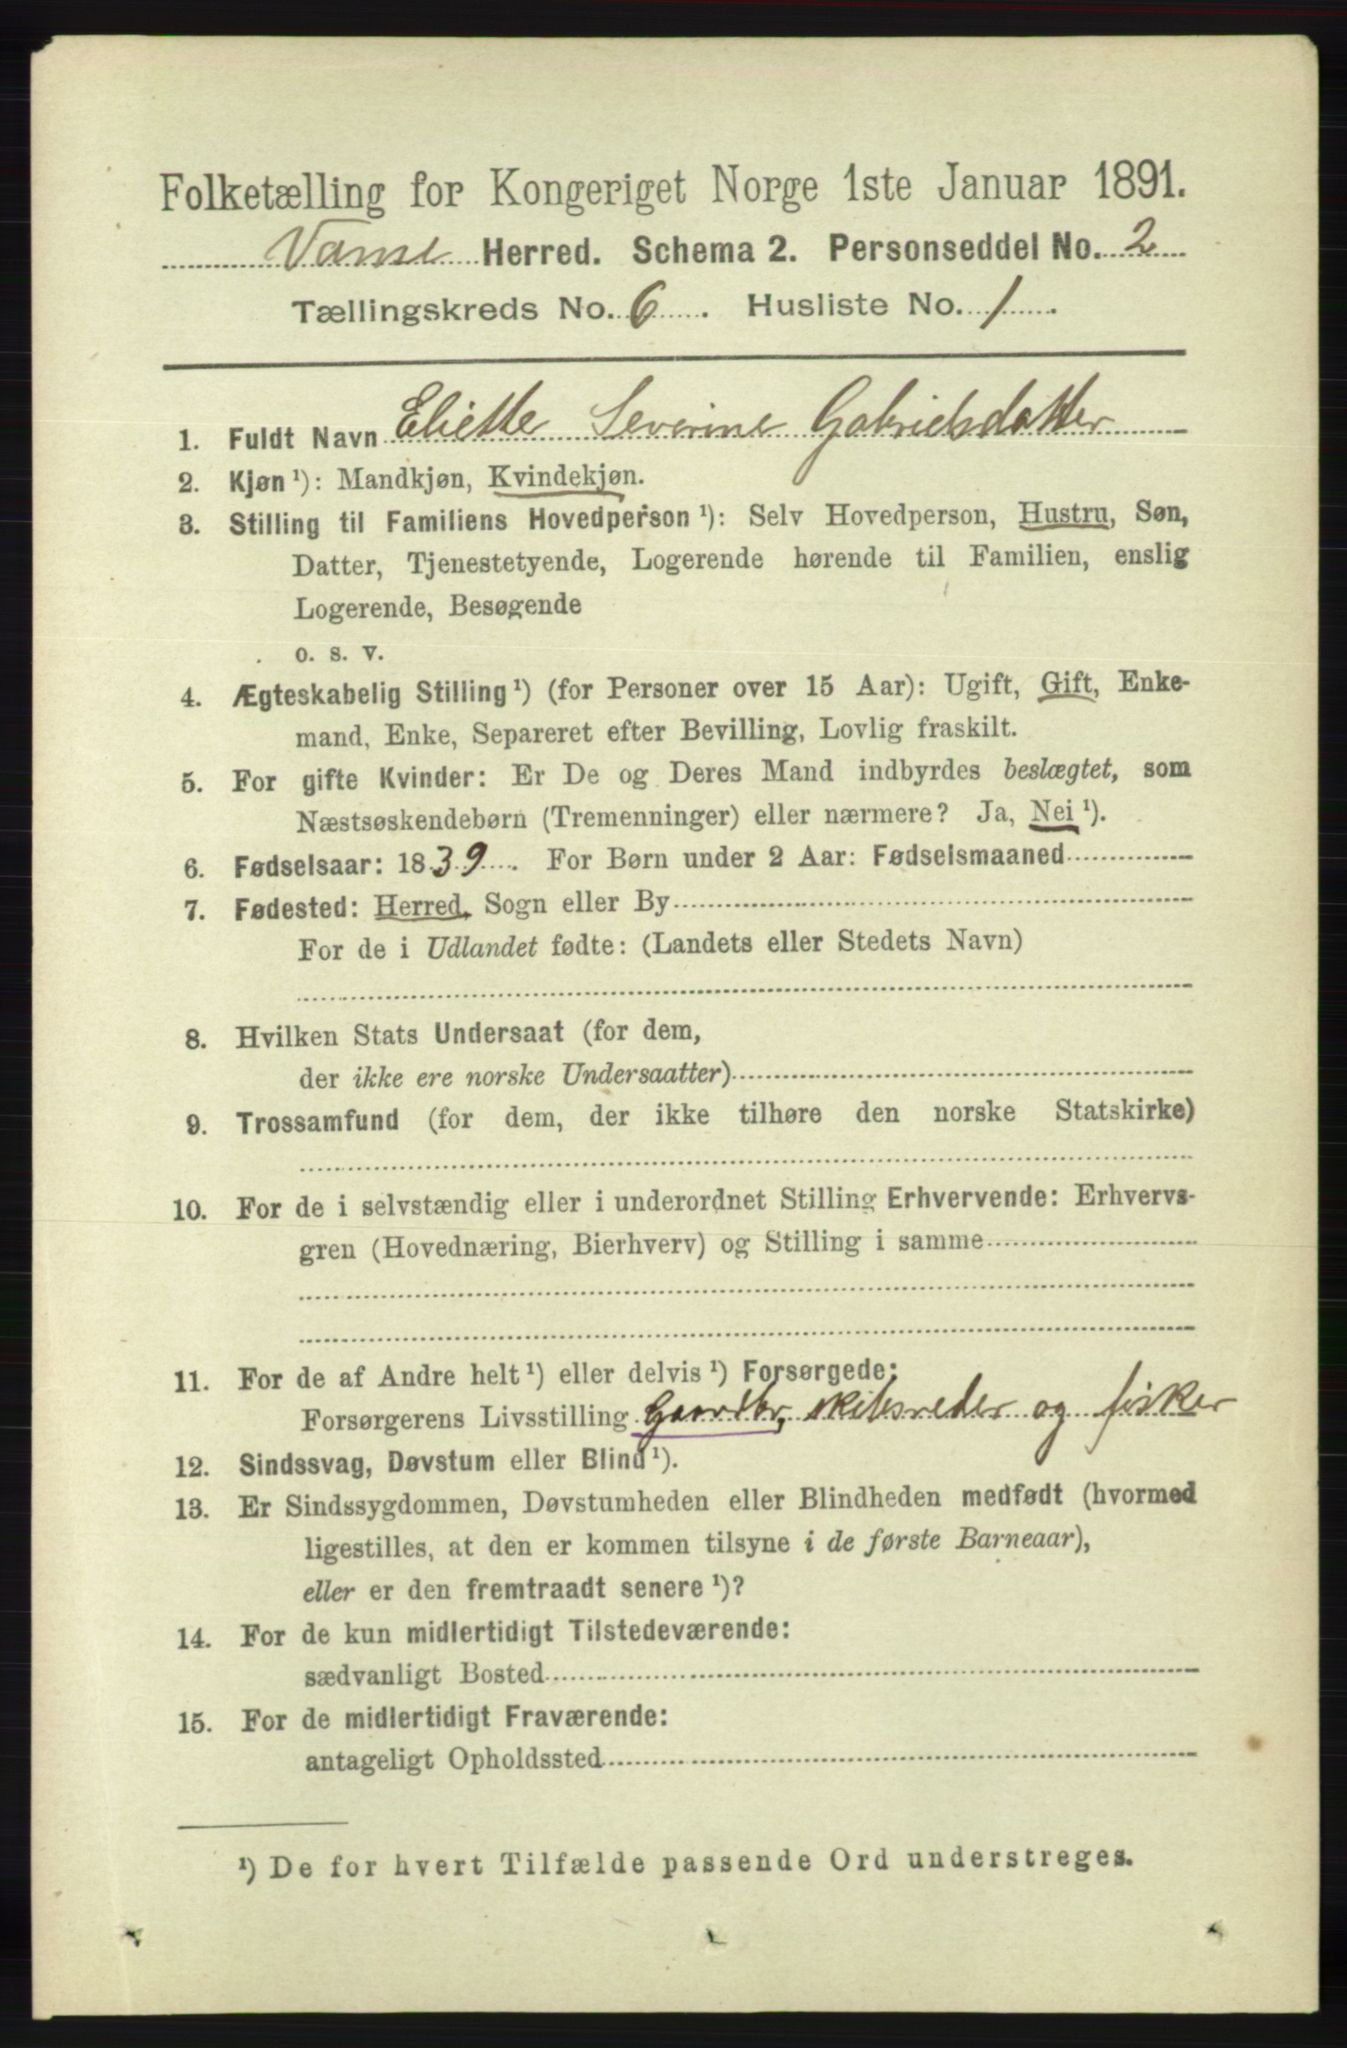 Folketælling for Kongeriget Norge 1ste Januar 1891.
Vanse Herred. Schema 2. Personseddel No. 2
Tællingskreds No. 6. Husliste No. 1.
1. Fuldt Navn Eliette Severine Gabrielsdatter
2. Kjøn ¹): Mandkjøn, Kvindekjøn.
3. Stilling til Familiens Hovedperson ¹): Selv Hovedperson, Hustru, Søn,
Datter, Tjenestetyende, Logerende hørende til Familien, enslig
Logerende, Besøgende
o. s. v.
4. Ægteskabelig Stilling ¹) (for Personer over 15 Aar): Ugift, Gift, Enke-
mand, Enke, Separeret efter Bevilling, Lovlig fraskilt.
5. For gifte Kvinder: Er De og Deres Mand indbyrdes beslægtet, som
Næstsøskendebørn (Tremenninger) eller nærmere? Ja, Nei ¹).
6. Fødselsaar: 1839. For Børn under 2 Aar: Fødselsmaaned
7. Fødested: Herred, Sogn eller By
For de i Udlandet fødte: (Landets eller Stedets Navn)
8. Hvilken Stats Undersaat (for dem,
der ikke ere norske Undersaatter)
9. Trossamfund (for dem, der ikke tilhøre den norske Statskirke)
10. For de i selvstændig eller i underordnet Stilling Erhvervende: Erhvervs-
gren (Hovednæring, Bierhverv) og Stilling i samme
11. For de af Andre helt ¹) eller delvis ¹) Forsørgede:
Forsørgerens Livsstilling Gaardbr, skibsreder og fisker
12. Sindssvag, Døvstum eller Blind ¹).
13. Er Sindssygdommen, Døvstumheden eller Blindheden medfødt (hvormed
ligestilles, at den er kommen tilsyne i de første Barneaar),
eller er den fremtraadt senere ¹)?
14. For de kun midlertidigt Tilstedeværende:
sædvanligt Bosted
15. For de midlertidigt Fraværende:
antageligt Opholdssted
¹) De for hvert Tilfælde passende Ord understreges.